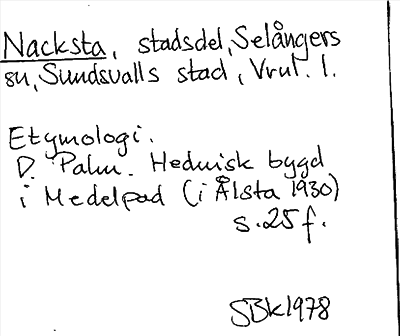 Nacksta, stadsdel, Selångers
sn, Sundsvalls stad, Vrul. l.
Etymologi.
D. Palm. Hednisk bygd
i Medelpad (i Ålsta 1930)
s. 25 f.
SBk 1978